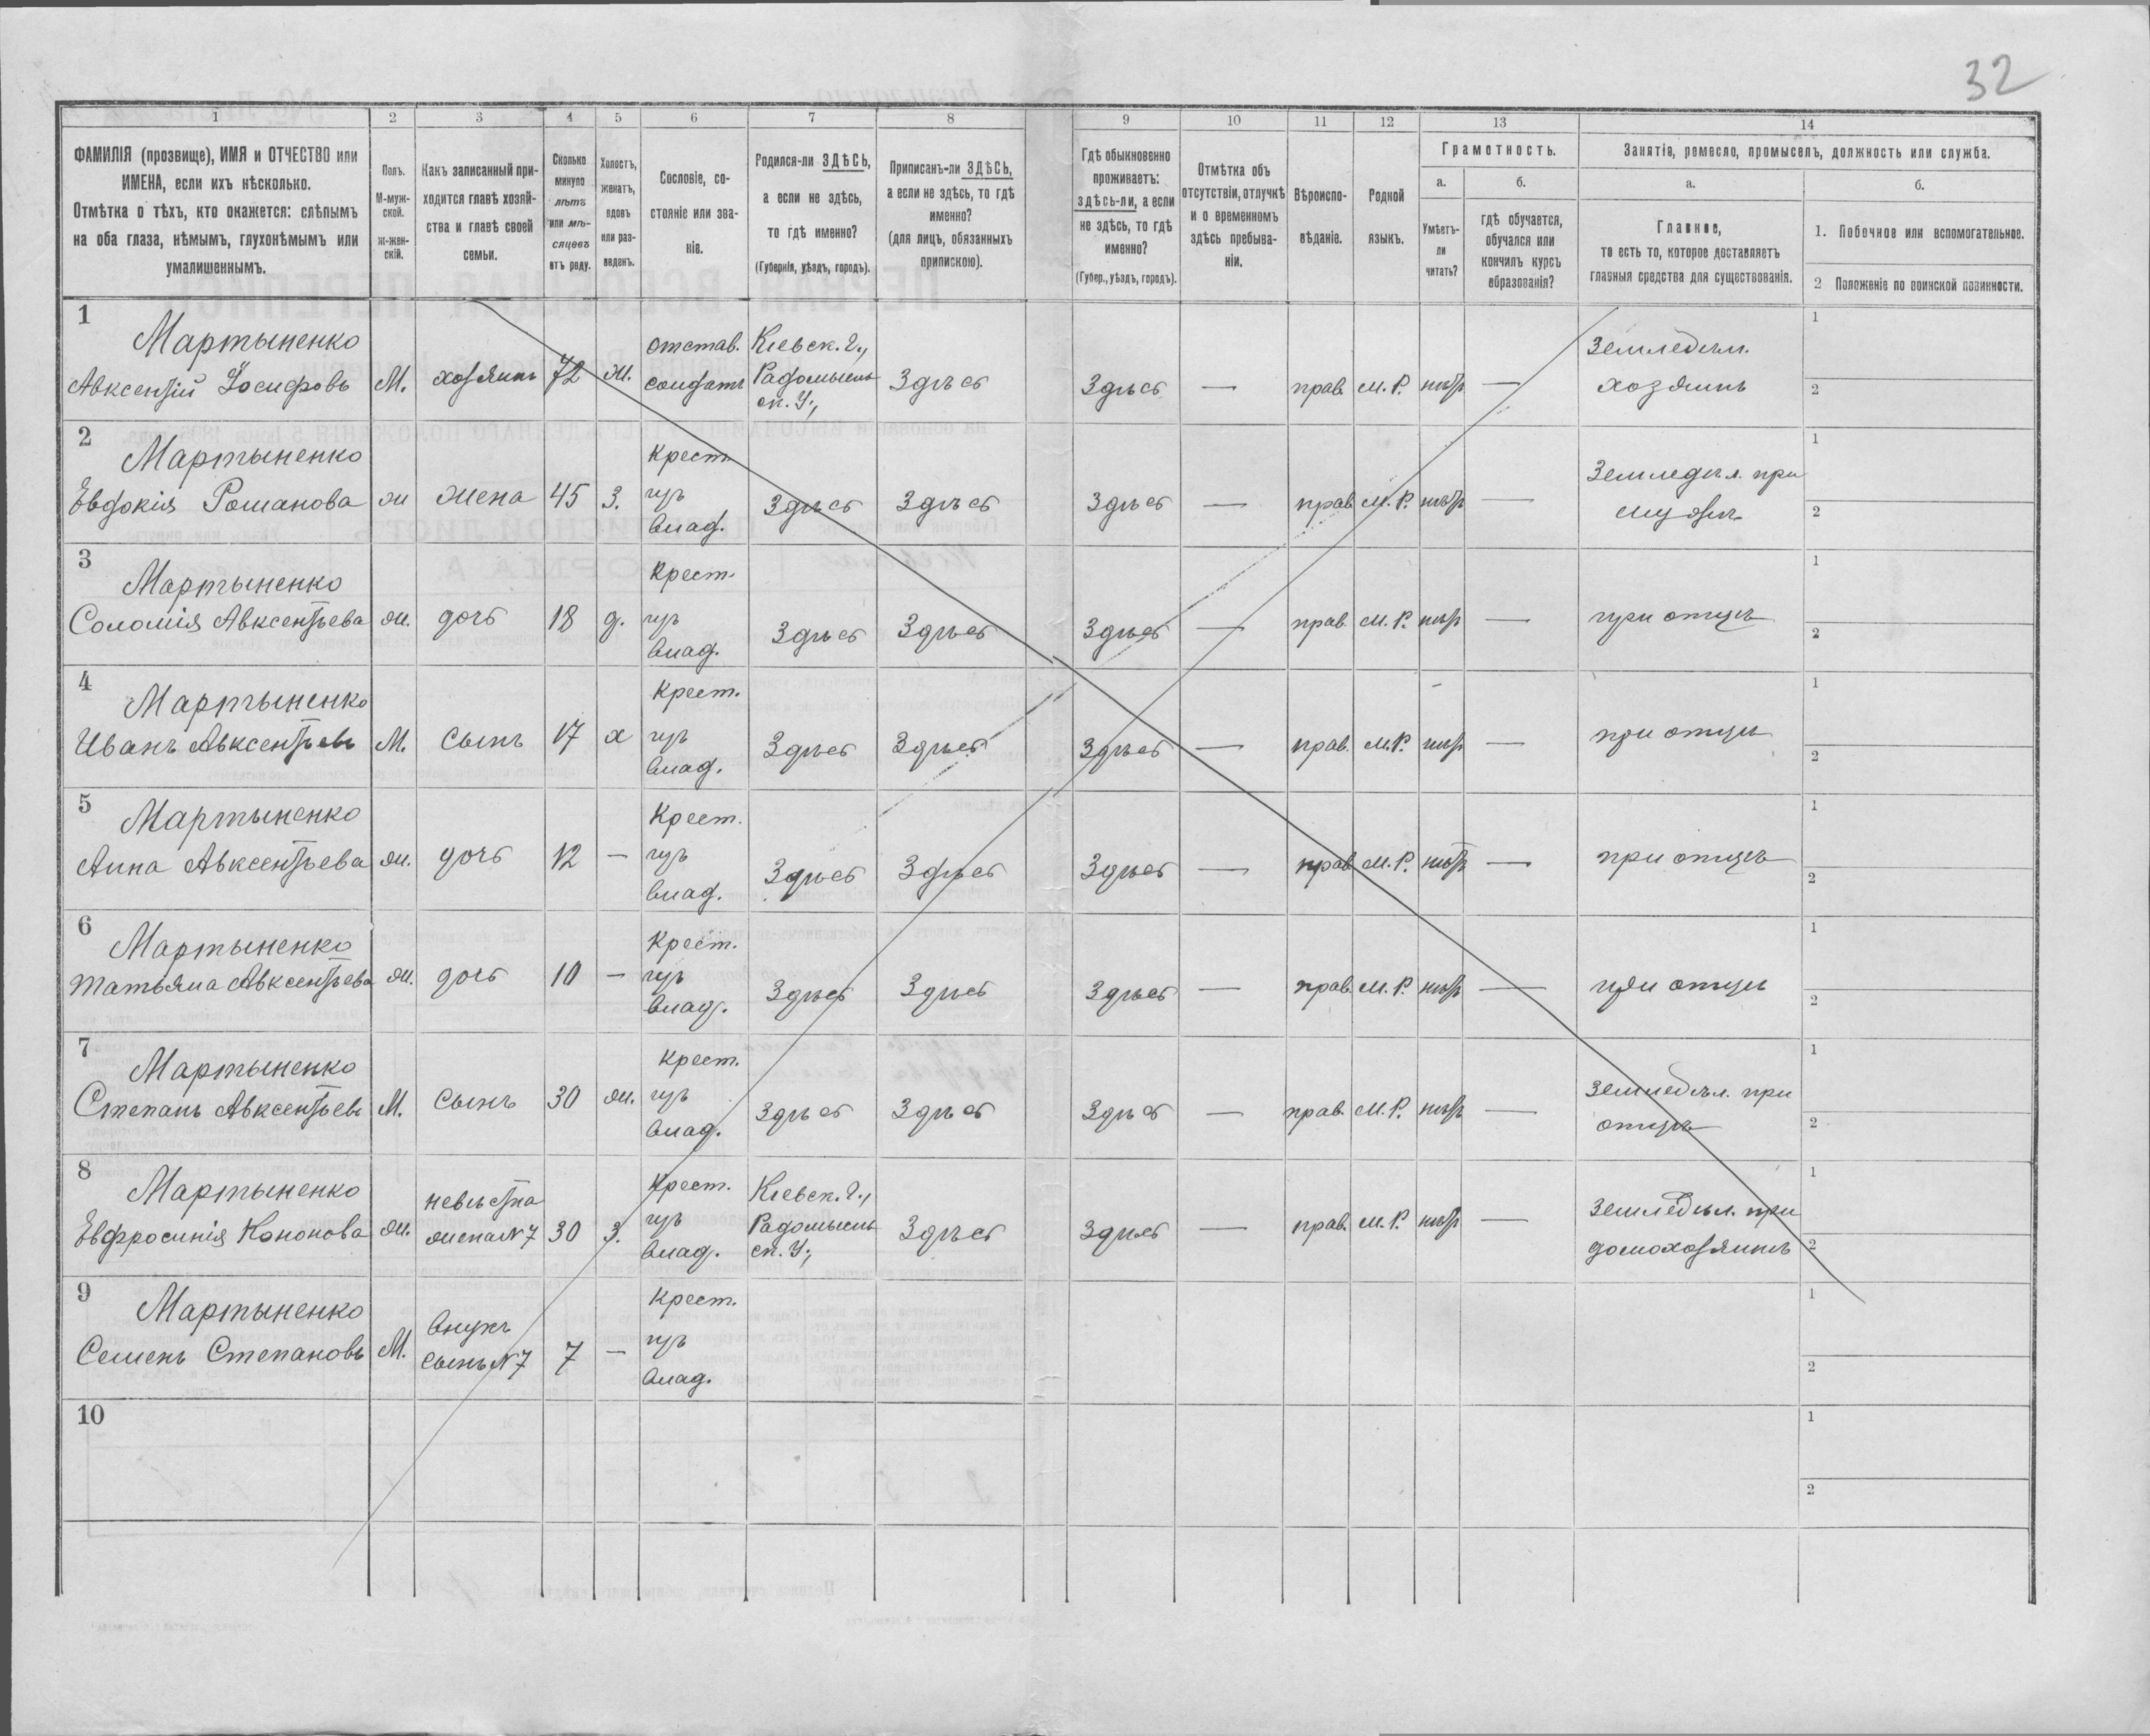 32
1 2 3 4 5 6 7 8 9 10 11 12 13 14
ФАМИЛІЯ (прозвище), ИМЯ и ОТЧЕСТВО или
ИМЕНА, если ихъ нѣсколько.
Отмѣтка о тѣхъ, кто окажется: слѣпымъ
на оба глаза, нѣмымъ, глухонѣмымъ или
умалишеннымъ.
Полъ.
М-муж-
ской.
ж-жен-
скій.
Какъ записанный при-
ходится главѣ хозяй-
ства и главѣ своей
семьи.
Сколько
минуло
лѣтъ
или мѣ-
сяцевъ
отъ роду.
Холостъ,
женатъ,
вдовъ
или раз-
веденъ.
Сословіе, со-
стояніе или зва-
ніе.
Родился-ли ЗДѢСЬ,
а если не здѣсь,
то гдѣ именно?
(Губернія, уѣздъ, городъ).
Приписанъ-ли ЗДѢСЬ,
а если не здѣсь, то гдѣ
именно?
(для лицъ, обязанныхъ
припискою).
Гдѣ обыкновенно
проживаетъ:
здѣсь-ли, а если
не здѣсь, то гдѣ
именно?
(Губер., уѣздъ, городъ).
Отмѣтка объ
отсутствіи, отлучкѣ
и о временномъ
здѣсь пребыва-
ніи.
Вѣроиспо-
вѣданіе.
Родной
языкъ.
Грамотность.
а.
Умѣетъ-
ли
читать?
б.
гдѣ обучается,
обучался или
кончилъ курсъ
образованія?
Занятіе, ремесло, промыселъ, должность или служба.
а.
Главное,
то есть то, которое доставляетъ
главныя средства для существованія.
б.
1. Побочное или вспомогательное.
2 Положеніе по воинской повинности.
1
Мартыненко отстав. Кіевск. г., Земледѣл. 1
Авксентій Іосифовъ М. хозяинъ 72 ж. солдатъ Радомысль Здѣсь Здѣсь — прав. М. Р. нѣтъ — хозяинъ 2
ск. У.,
2
Мартыненко Крест. Земледѣл. при 1
Евдокія Романова ж жена 45 з. изъ Здѣсь Здѣсь Здѣсь — прав. М. Р. нѣтъ — мужѣ 2
Влад.
3
Мартыненко Крест. 1
Соломія Авксентьева ж. дочь 18 д. изъ Здѣсь Здѣсь Здѣсь — прав. М. Р. нѣтъ — при отцѣ 2
Влад.
4
Мартыненко Крест. 1
Иванъ Авксентьевъ М. сынъ 17 х изъ Здѣсь Здѣсь Здѣсь — прав. М. Р. нѣтъ — при отцѣ 2
Влад.
5
Мартыненко Крест. 1
Анна Авксентьева ж. дочь 12 — изъ Здѣсь Здѣсь Здѣсь — прав. М. Р. нѣтъ — при отцѣ 2
Влад.
6
Мартыненко Крест. 1
Татьяна Авксентьева ж. дочь 10 — изъ Здѣсь Здѣсь Здѣсь — прав. М. Р. нѣтъ — при отцѣ 2
Влад.
7
Мартыненко Крест. Земледѣл. при 1
Степанъ Авксентьевъ М. сынъ 30 ж. изъ Здѣсь Здѣсь Здѣсь — прав. М. Р. нѣтъ — отцѣ 2
Влад.
8
Мартыненко невѣстка Крест. Кіевск. г., Земледѣл. при 1
Евфросинія Кононова ж. жена N 7 30 з. изъ Радомысль Здѣсь Здѣсь — прав. М. Р. нѣтъ — домохозяинѣ 2
Влад. ск. У.,
9
Мартыненко внукъ Крест. 1
Семенъ Степановъ М. сынъ N 7 7 — изъ 2
Влад.
10
1
2